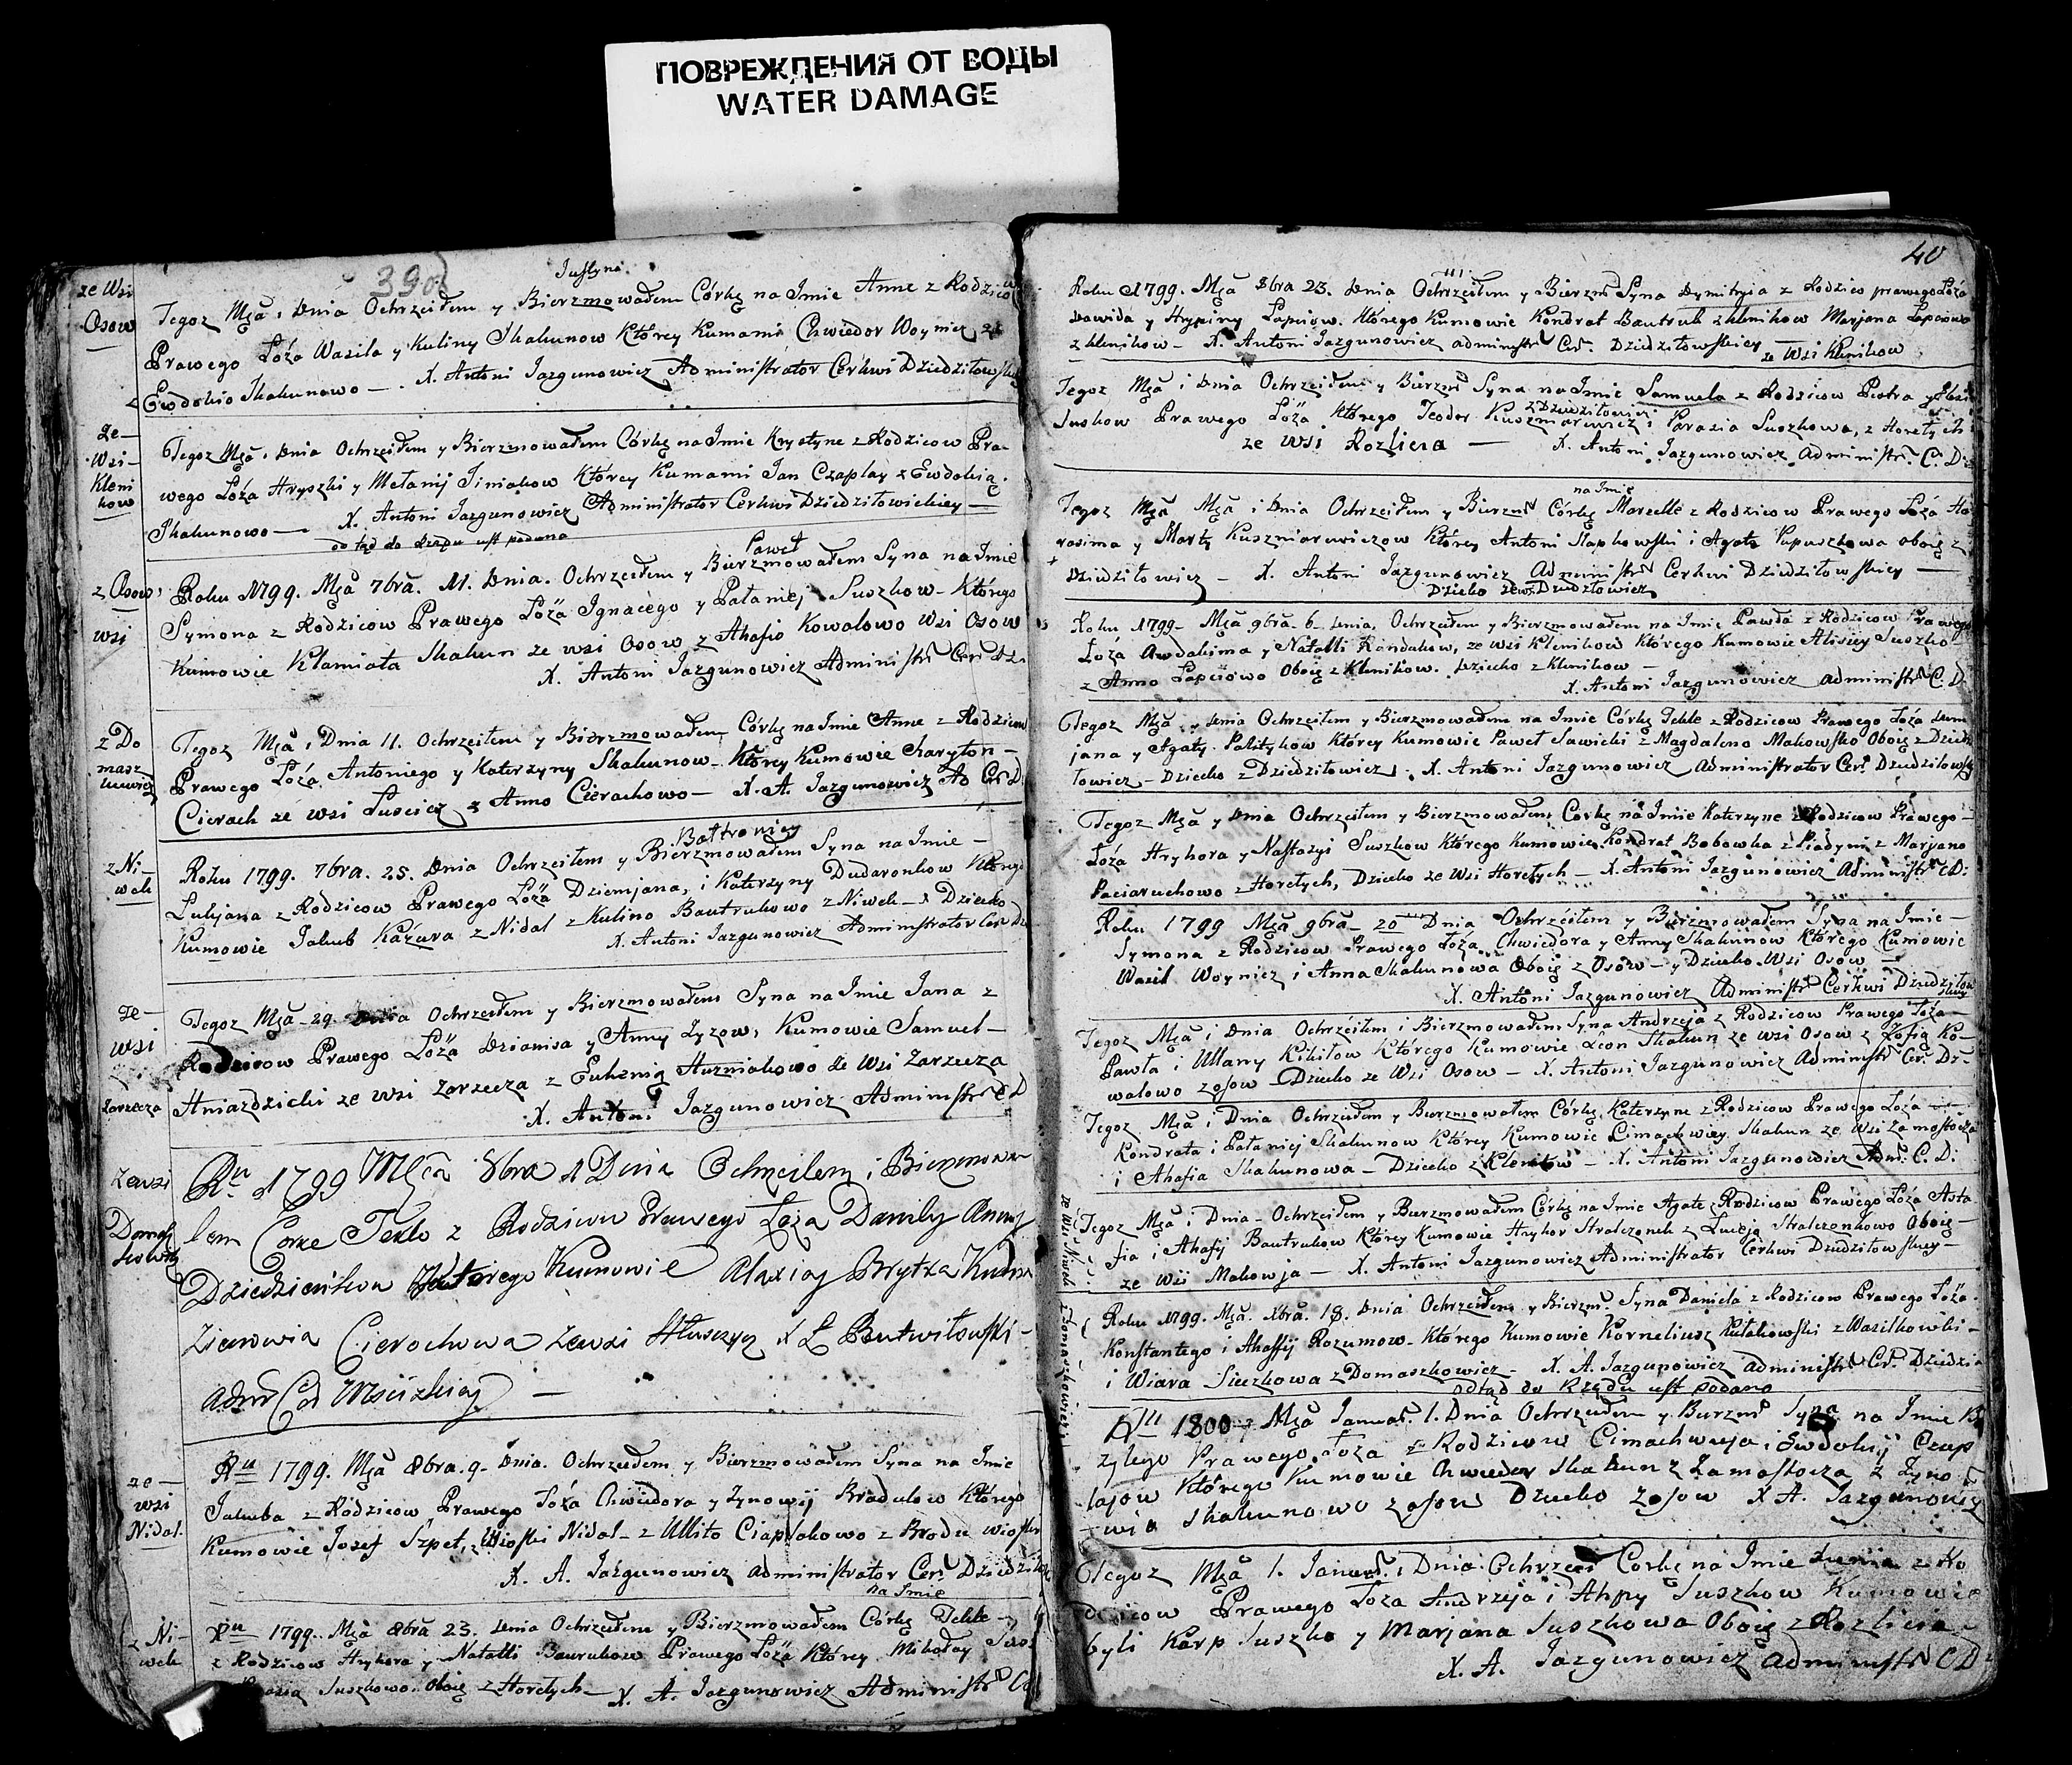 ПОВРЕЖДЕНИЯ ОТ ВОДЫ
WATER DAMAGE
390
ze Wsi
Osow
Justyna
Tegoz Mça i Dnia Ochrzciłem y Bierzmowałem Córkę na Imie Anne z Rodzicow
Prawego Łoża Wasila y Kuliny Skakunow Ktorey Kumami Chwiedor Woynicz z
Ewdokio Skakunowo — X. Antoni Jazgunowicz Administrator Cerkwi Dziedziłowskiey
ze
Wsi
Kleni
kow
Tegoz Mça i Dnia Ochrzciłem y Bierzmowałem Córkę na Imie Krystyne z Rodzicow Pra-
wego Łoża Hryszki y Metanij Siniakow Ktorey Kumami Jan Czaplay z Ewdokią
Skakunowo — X. Antoni Jazgunowicz Administrator Cerkwi Dziedziłowickiey —
do tąd do Rządu ust podana
z Osow
wsi
Paweł
Roku 1799. Mça 7bra. 11. Dnia. Ochrzciłem y Bierzmowałem Syna na Imie
Symona z Rodzicow Prawego Łoża Ignacego y Pałaniej Suszkow — Ktorego
Kumowie Kłamiata Skakun ze wsi Osow z Ahafio Kowalowo Wsi Osow
X. Antoni Jazgunowicz Administr Cer Dzi
z Do
masz
kiewicz
Tegoz Mça i Dnia 11. Ochrzciłem y Bierzmowałem Córkę na Imie Anne z Rodzicow
Prawego Łoża Antoniego y Katerzyny Skakunow — Ktorey Kumowie Charyton —
Cierach ze wsi Suscicz z Anno Cierachowo — X. A. Jazgunowicz Ad Cer D:
z Ni-
wek
Roku 1799. 7bra. 25. Dnia Ochrzciłem y Bierzmowałem Syna na Imie —
Łukjana z Rodzicow Prawego Łoża Dziemjana, i Katerzyny Dudaronkow Ktorego
Kumowie Jakub Kazura z Nidal z Kulino Bautrukowo z Niwek — Dziecko
X. Antoni Jazgunowicz Administrator Cer Dz
ze —
wsi
Zarzecza
Tegoz Mça — 29 Dnia Ochrzciłem y Bierzmowałem Syna na Imie Jana z
Rodzicow Prawego Łoża Dzianisa y Anny Zyzow, Kumowie Samuel —
Hniazdzicki ze wsi Zarzecza z Euhenią Huzniakowo ze Wsi Zarzecza
X. Antoni Jazgunowicz Administr C D
ze wsi
Ru 1799 Mça 8bra 1 Dnia Ochrzcilem i Bierzmowa-
lem Corke Tekle z Rodzicow Prawego Łoża Daniły Anny
Kumowie Alaxiay Brytka
Cierochowa ze wsi
ze —
wsi
Nidal.
Ru 1799. Mça 8bra. 9. Dnia. Ochrzciłem y Bierzmowałem Syna na Imie
Jakuba z Rodzicow Prawego Łoża Chwiedora y Zynowij Bradukow Ktorego
Kumowie Jozef Szpet, z Wioski Nidal — z Ullito Ciaplukowo z Brodu wioski
X. A. Jazgunowicz administrator Cer. Dziedził
z Ni-
wek
na Imie
Ru 1799. Mça 8bra 23. Dnia Ochrzciłem y Bierzmowałem Córkę Tekle —
z Rodzicow Hrykora y Natalli Baurukow Prawego Łoża Ktorey Mikołay
Suszkowo. Oboię z Horełych — X. A. Jazgunowicz Administr
40
Roku 1799. Mça 8bra 23. Dnia Ochrzciłem y Bierzm Syna Dymitryia z Rodzico prawego Łoża
Dawida y Hrypiny Łapciow. Ktorego Kumowie Kondrat Bautruk z Klenikow Marjana Łapciowa
z Klenikow — X. Antoni Jazgunowicz administr Cer. Dziedziłowskiey ze Wsi Klenikow
Tegoz Mça i Dnia Ochrzciłem y Bierzm Syna na Imie Samuela z Rodzicow Piotra y
Suskow Prawego Łoża Ktorego Teodor Kuszniarewicz z Dziedziłowicz i Parasia Suszkowa, z Horełych
ze wsi Rozliera — X. Antoni Jazgunowicz Administr. C. D
na Imie
Tegoz Mça Mça i Dnia Ochrzciłem y Bierzm Córkę Marzelle z Rodzicow Prawego Łoża Ha
rasima y Marty Kuszniarewiczow Ktorey Antoni Słapkowski i Agata Papuszkowa oboię z
Dziedziłowicz — X. Antoni Jazgunowicz Administr Cerkwi Dziedziłowskiey —
Dziecko ze ws. Dziedziłowicz
Roku 1799 — Mça 9bra. 6 — Dnia. Ochrzciłem y Bierzmowałem na Imie Pawła z Rodzicow Prawego
Łoża Awdakima y Natalli Kandukow, ze wsi Klenikow Ktorego Kumowie Alisiey Suszko —
z Anno Łapciowo Oboię z Klenikow. Dziecko z Klenikow —
X. Antoni Jazgunowicz administr C. D
Tegoz Mça y Dnia Ochrzciłem y Bierzmowałem na Imie Córkę Tekle z Rodzicow Prawego Łoża Dem
jana y Agaty Palitykow Ktorey Kumowie Paweł Sawicki z Magdaleno Makowsko Oboię z Dziedzi
łowicz — Dziecko z Dziedziłowicz. X. Antoni Jazgunowicz Administrator Cer. Dziedziłowsk
Tegoz Mça y Dnia Ochrzciłem y Bierzmowałem Corkę na Imie Katerzyne z Rodzicow Prawego —
Łoża Hryhora y Nastazyi Suszkow Ktorego Kumowie Kondrat Bobowka z Piadyni z Marjano
Paciaruchowo z Horełych, Dziecko ze Wsi Horełych — X. Antoni Jazgunowicz Administr C D:
Roku 1799 Mça 9bra — 20 Dnia Ochrzciłem y Bierzmowałem Syna na Imie —
Symona z Rodzicow Prawego Łoża Chwiedora y Anny Skakunow Ktorego Kumowie
Wasil Woynicz i Anna Skakunowa Oboię z Osow — y Dziecko Wsi Osow —
X. Antoni Jazgunowicz Administr Cerkwi Dziedziłow
skiey
Tegoz Mça i Dnia Ochrzciłem i Bierzmowałem Syna Andrzeja z Rodzicow Prawego Łoża —
Pawła i Ullany Kikiłow Ktorego Kumowie Leon Skakun ze wsi Osow z Zofią Ko-
walowo z Osow — Dziecko ze Wsi Osow — X. Antoni Jazgunowicz Administr Cer. Dz —
Tegoz Mça i Dnia Ochrzciłem y Bierzmowałem Córkę Katerzyne z Rodzicow Prawego Łoża —
Kondrata i Pałaniej Skakunow Ktorey Kumowie Cimachwiey Skakun ze wsi Zamostocza
i Ahafia Skakunowa — Dziecko z Klenikow — X. Antoni Jazgunowicz Adm. C. D:
Tegoz Mça i Dnia — Ochrzciłem y Bierzmowałem Córkę na Imie Agate z Rodzicow Prawego Łoża Asta
fia i Ahafij Bautrukow Ktorey Kumowie Hryhor Stralczonek z Łucyą Stralczonkowo Oboię —
ze wsi Makowja — X. Antoni Jazgunowicz Administrator Cerkwi Dziedziłowskiey —
ze Wsi Niwek
z Domaszkowicz
Roku 1799. Mça. Xbra. 18. Dnia Ochrzciłem y Bierzm. Syna Daniela z Rodzicow Prawego Łoża.
Konstantego i Ahafij Rozumow — Ktorego Kumowie Korneliusz Kułakowski z Wasilkowki —
i Wiara Siuzkowa z Domaszkowicz — X. A. Jazgunowicz administr Cer. Dziedzi
odtąd do Rządu ust podano
Ru 1800 Mça Januar. 1. Dnia Ochrzciłem y Bierzm Syna na Imie Ba
zylego Prawego Łoża z Rodzicow Cimachwieja i Ewdokij Czap
łajow Ktorego Kumowie Chwiedor Skakun z Zamostocza z Zyno
wia Skakunowo z Osow Dziecko z Osow X A. Jazgunowicz
Tegoz Mça 1. Januar. i Dnia Ochrzcił Corkę na Imie z Ro
dzicow Prawego Łoża Andrzeja i Ahapy Suszkow Kumowie
byli Karp Suszko y Marjana Suszkowa Oboię z Rozliera
X. A. Jazgunowicz administr C D